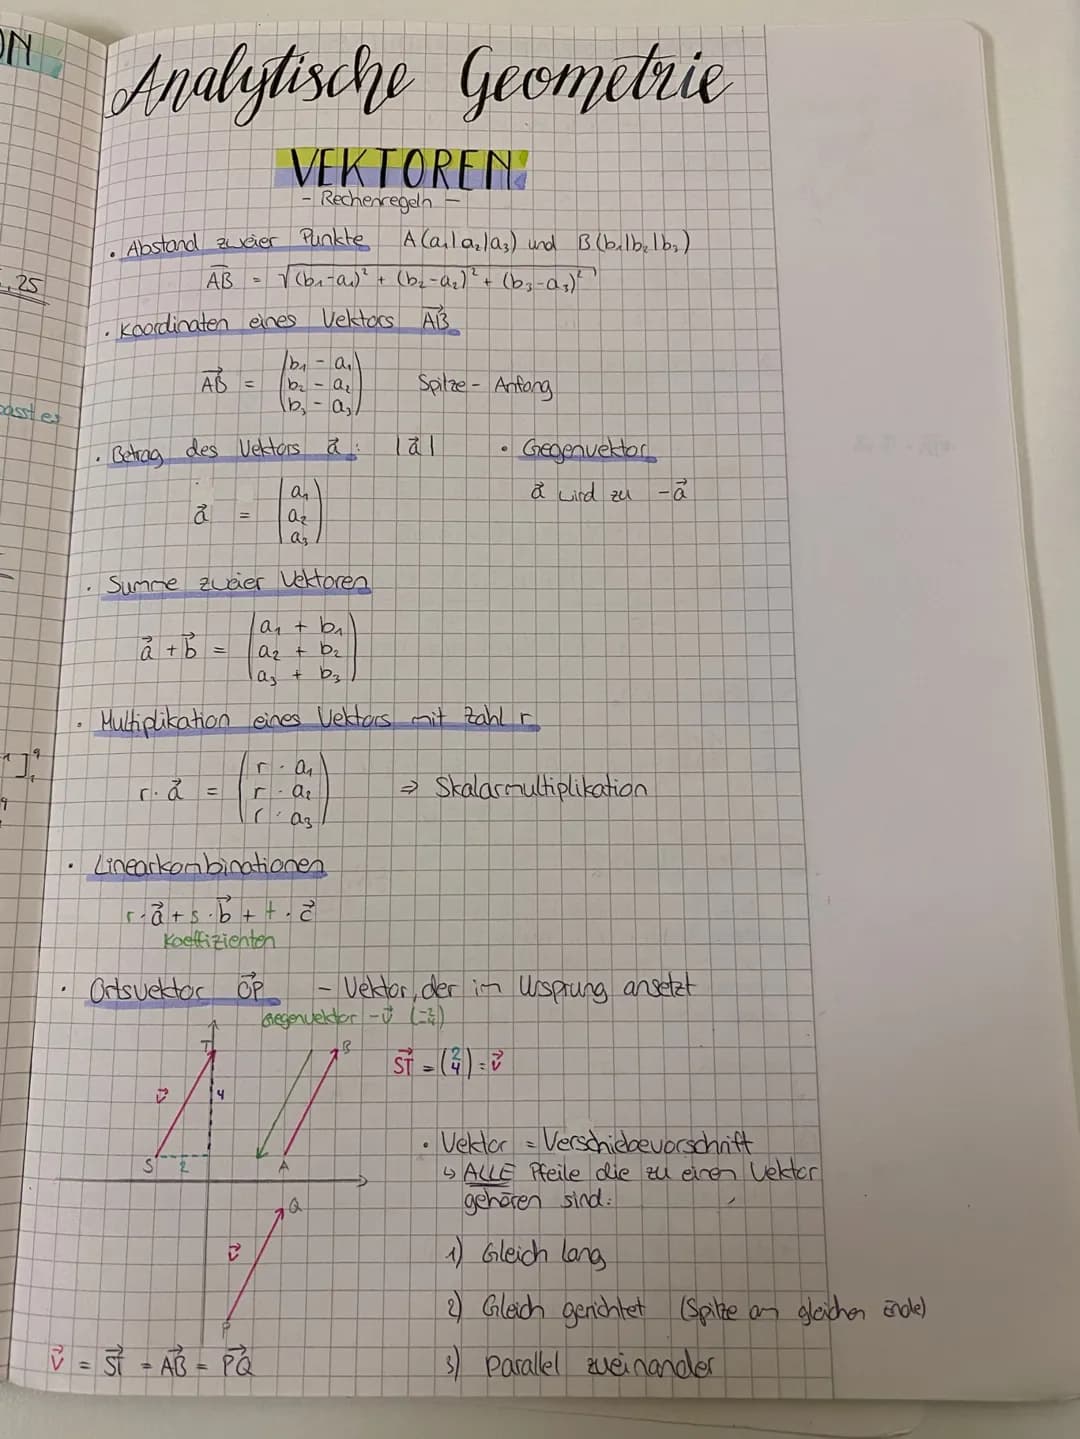 ON
Analytische Geometrie
VEKTOREN
- Rechenregeln -
• Abstand zweier Punkte A(a₁|a₂|a₃) und B(b₁|b₂|b₃)
,25
AB̅ = √(b₁-a₁)² + (b₂-a₂)² + (b₃-a₃)²
• Koordinaten eines Vektors AB⃗
AB⃗ = (b₁ - a₁
b₂ - a₂
b₃ - a₃) Spitze - Anfang
passt es
• Betrag des Vektors a⃗ : |a⃗|
• Gegenvektor
a⃗ wird zu -a⃗
a⃗ = (a₁
a₂
a₃)
• Summe zweier Vektoren
a⃗ + b⃗ = (a₁ + b₁
a₂ + b₂
a₃ + b₃)
• Multiplikation eines Vektors mit Zahl r
r · a⃗ = (r · a₁
r · a₂
r · a₃) ⇒ Skalarmultiplikation
• Linearkombinationen
r · a⃗ + s · b⃗ + t · c⃗
Koeffizienten
• Ortsvektor OP⃗ - Vektor, der im Ursprung ansetzt
Gegenvektor -v⃗ (-2 -4)
T
B
v⃗
4
ST⃗ = (2 4) = v⃗
S
2
A
• Vektor = Verschiebevorschrift
↳ ALLE Pfeile die zu einem Vektor
gehören sind:
Q
v⃗
P
1) Gleich lang
2) Gleich gerichtet (Spitze am gleichen Ende)
3) parallel zueinander
v⃗ = ST⃗ = AB⃗ = PQ⃗